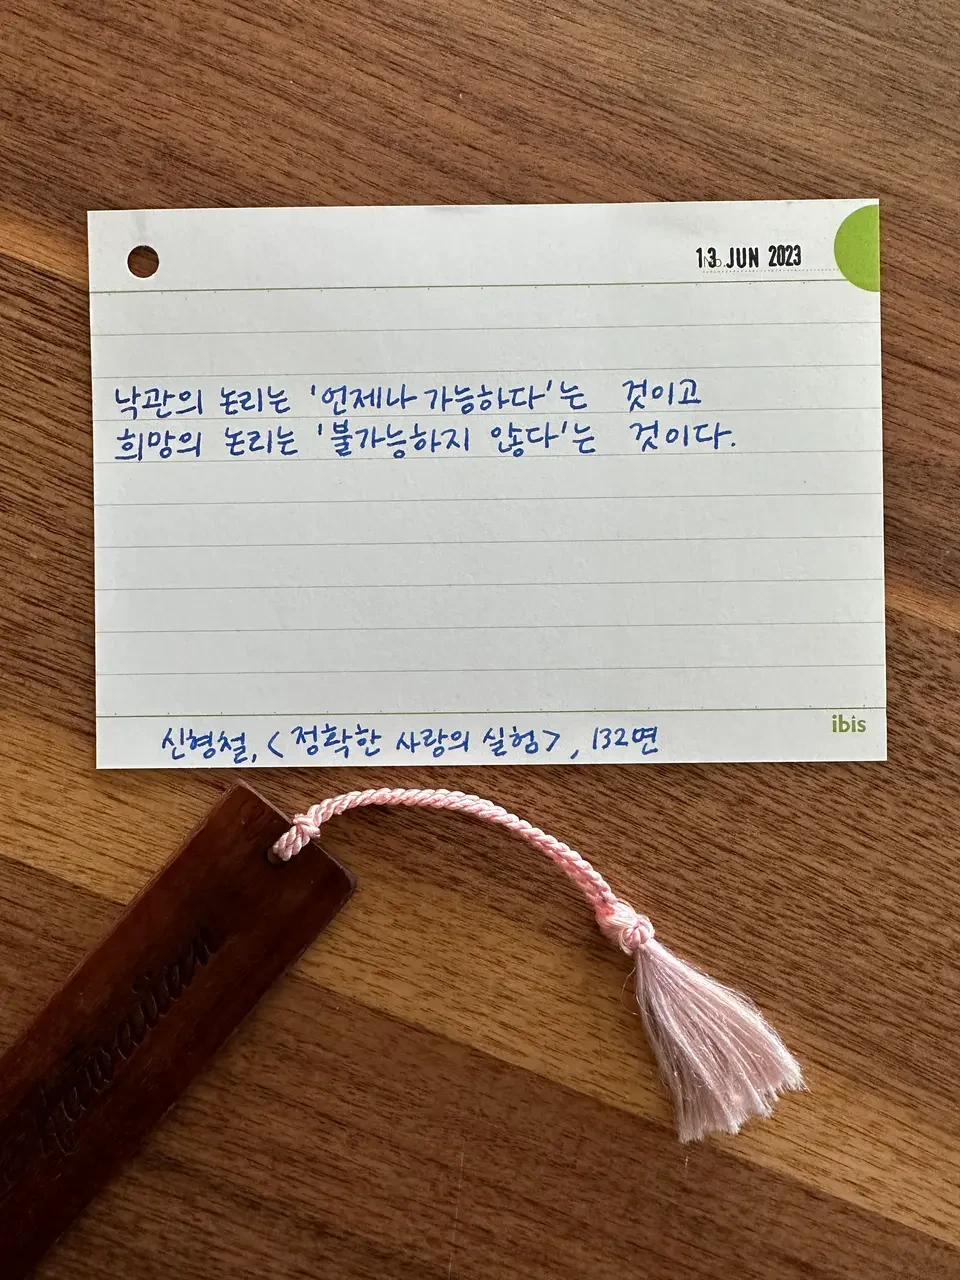 13 JUN 2023
낙관의 논리는 '언제나 가능하다'는 것이고
희망의 논리는 '불가능하지 않다'는 것이다.
ibis
신형철, <정확한 사랑의 실험>, 132면
Hawaiian